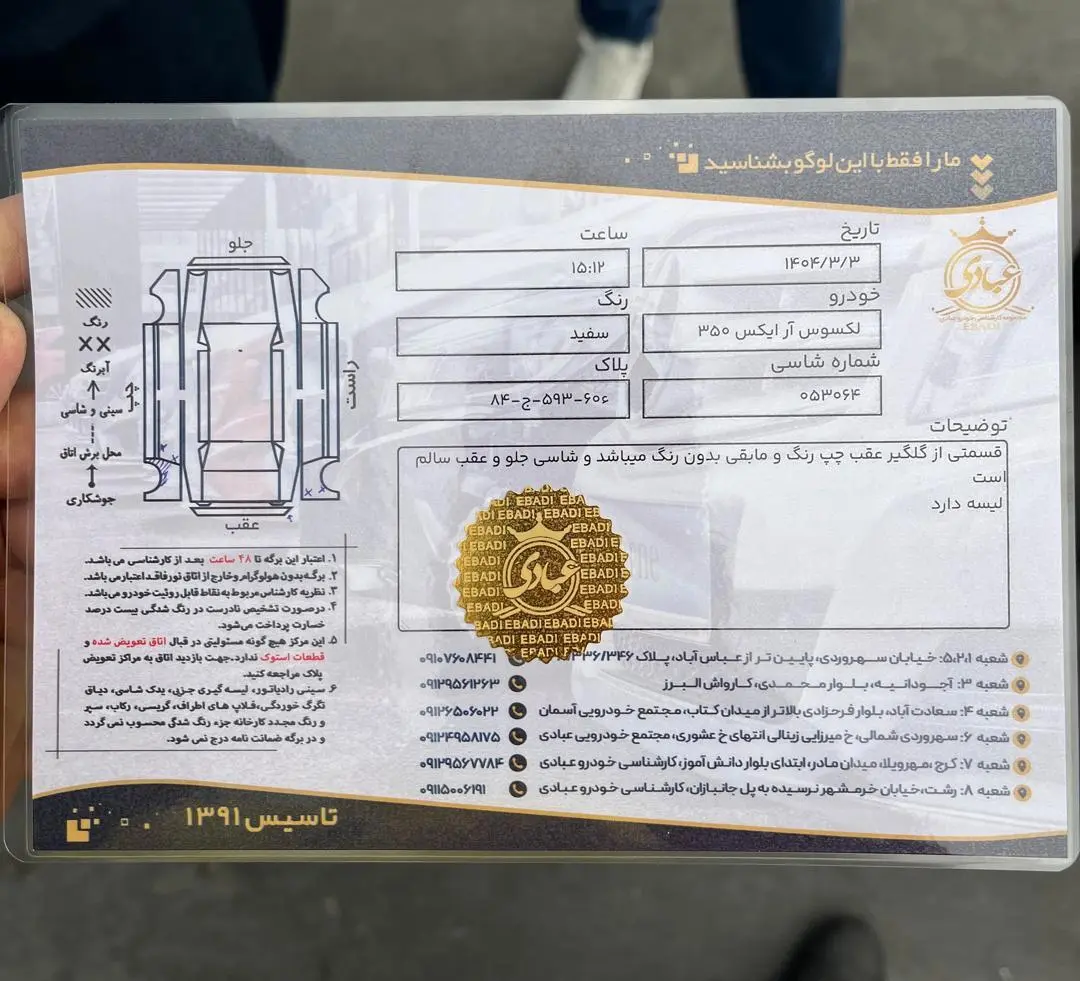 ما را فقط با این لوگو بشناسید
عبادی
مجموعه کارشناسی خودرو عبادی
EBADI
تاریخ
۱۴۰۴/۳/۳
ساعت
۱۵:۱۲
خودرو
لکسوس آر ایکس ۳۵۰
رنگ
سفید
شماره شاسی
۰۵۳۰۶۴
پلاک
۸۴-ج-۵۹۳-۶۰۶
توضیحات
قسمتی از گلگیر عقب چپ رنگ و مابقی بدون رنگ میباشد و شاسی جلو و عقب سالم
است
لیسه دارد
جلو
عقب
راست
چپ
رنگ
XX
آبرنگ
سینی و شاسی
محل برش اتاق
جوشکاری
EBADI
عبادی
۱. اعتبار این برگه تا ۴۸ ساعت بعد از کارشناسی می باشد.
۲. برگه بدون هولوگرام و خارج از اتاق نور فاقد اعتبار می باشد.
۳. نظریه کارشناس مربوط به نقاط قابل روئیت خودرو می‌باشد.
۴. در صورت تشخیص نادرست در رنگ شدگی بیست درصد
خسارت پرداخت می‌شود.
۵. این مرکز هیچ گونه مسئولیتی در قبال اتاق تعویض شده و
قطعات استوک ندارد.جهت بازدید اتاق به مراکز تعویض
پلاک مراجعه کنید.
۶. سینی رادیاتور، لیسه گیری جزیی، یدک شاسی، دیاق
تگرگ خوردگی، قلاب های اطراف، گریسی، رکاب، سپر
و رنگ مجدد کارخانه جزء رنگ شدگی محسوب نمی گردد
و در برگه ضمانت نامه درج نمی شود.
شعبه ۵،۲،۱: خیابان سهروردی، پایین تر از عباس آباد، پلاک ۳۳۶/۳۴۶ ۰۹۱۰۷۶۰۸۴۴۱
شعبه ۳: آجودانیه، بلوار محمدی، کارواش البرز ۰۹۱۲۹۵۶۱۲۶۳
شعبه ۴: سعادت آباد، بلوار فرحزادی بالاتر از میدان کتاب، مجتمع خودرویی آسمان ۰۹۱۲۶۵۰۶۰۲۲
شعبه ۶: سهروردی شمالی، خ میرزایی زینالی انتهای خ عشوری، مجتمع خودرویی عبادی ۰۹۱۲۴۹۵۸۱۷۵
شعبه ۷: کرج، مهرویلا، میدان مادر، ابتدای بلوار دانش آموز، کارشناسی خودرو عبادی ۰۹۱۲۹۵۶۷۷۸۴
شعبه ۸: رشت، خیابان خرمشهر نرسیده به پل جانبازان، کارشناسی خودرو عبادی ۰۹۱۱۵۰۰۶۱۹۱
تاسیس ۱۳۹۱